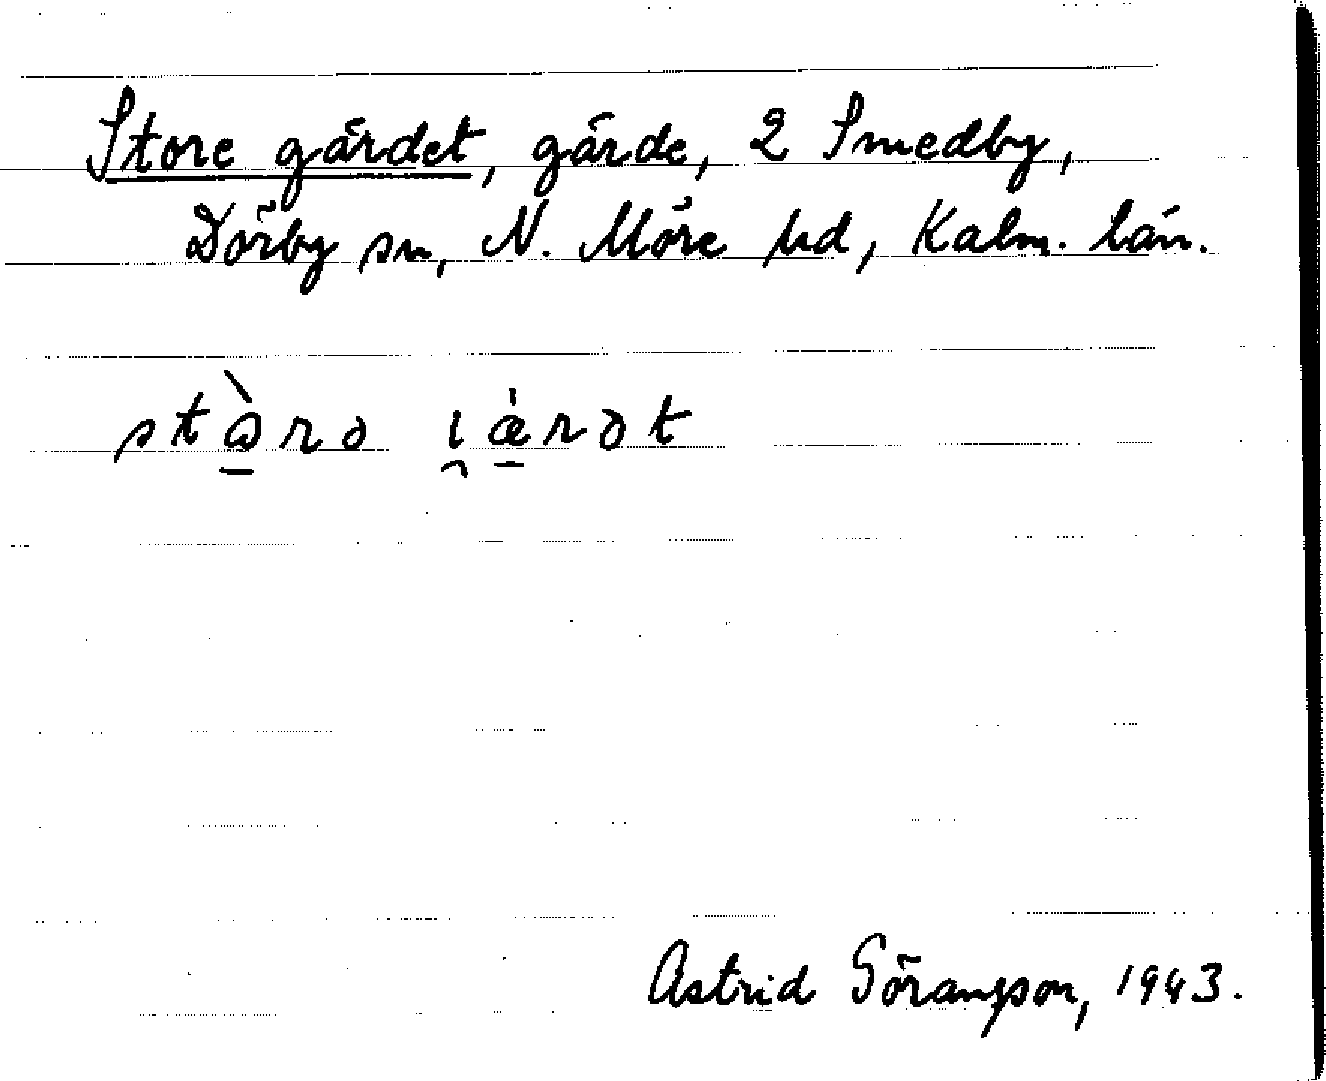 Store gärdet, gärde, 2 Smedby,
Dörby sn, N. Möre hd, Kalm. län.
stɔ̠̀rə i̯æ̠̀rət
Astrid Göransson, 1943.